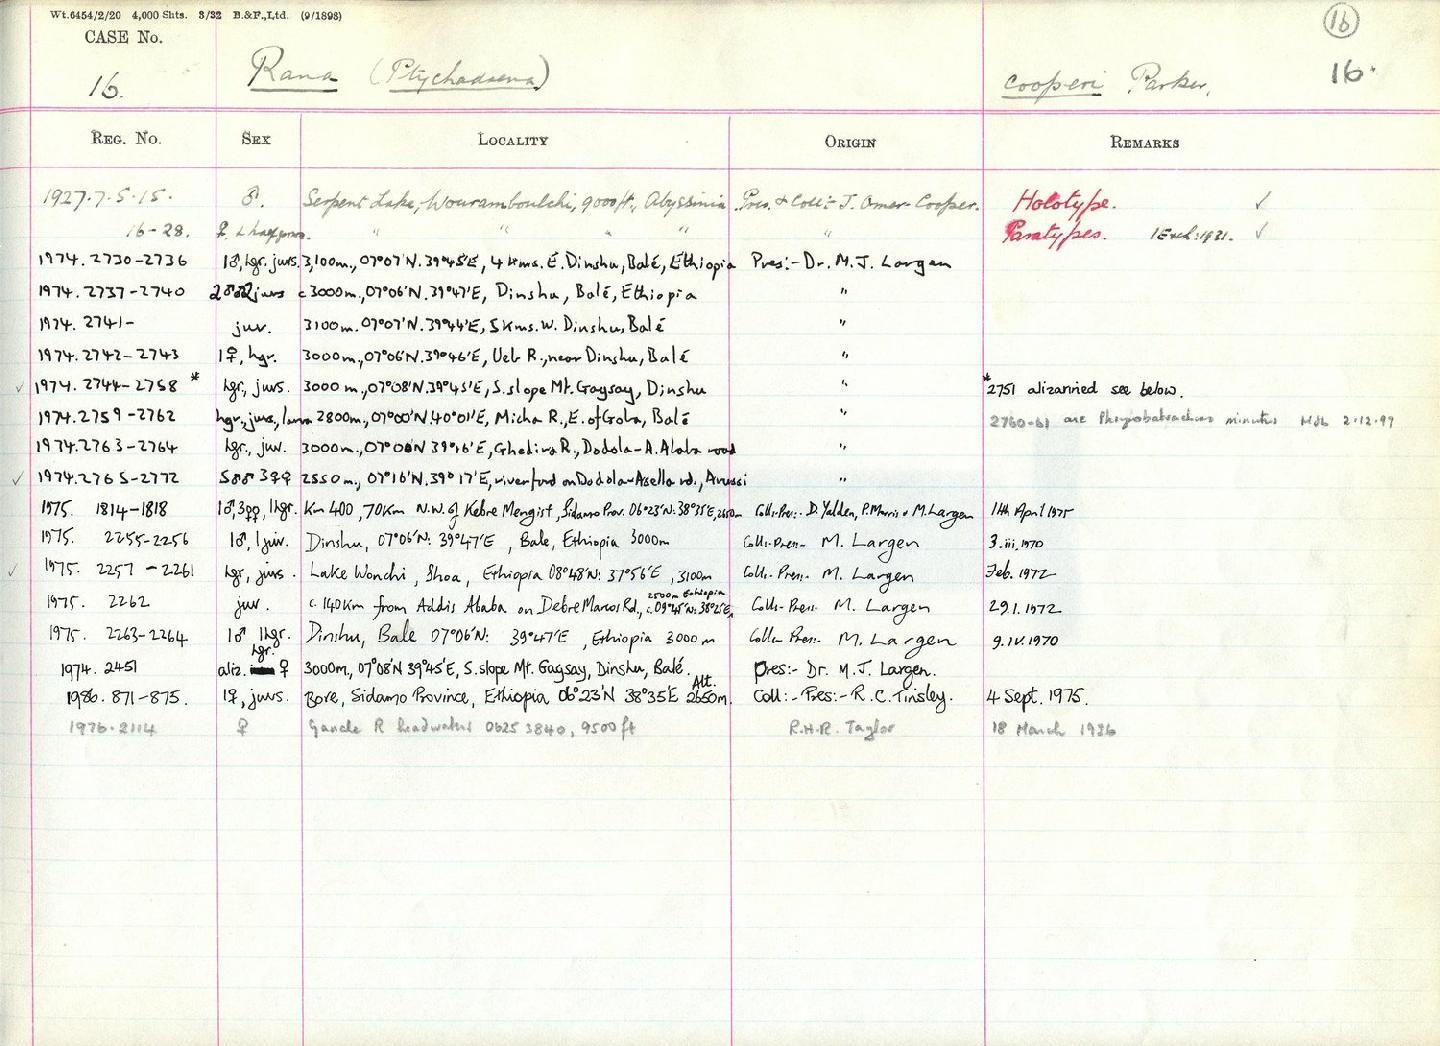 Wt.6454/2/20 4,000 Shts. 3/32 B.&F.,Ltd. (9/1898)
CASE No.
16
16. Rana (Ptychadaena) cooperi Parker. 16.
REG. No. SEX LOCALITY ORIGIN REMARKS
1927.7.5.15. ♂. Serpent Lake, Wouramboulchi, 9000 ft., Abyssinia Pres. & Coll:- J. Omer-Cooper. Holotype. ✓
16-28. ♀ & half grown. " " " " " Paratypes. 1 Exch: 1931. ✓
1974.2730-2736 1♂, hgr, juvs. 3,100m., 07°07'N.39°45'E, 4 kms. E. Dinshu, Balé, Ethiopia Pres:- Dr. M.J. Largen
1974.2737-2740 2♂♂2juvs c3000m., 07°06'N.39°47'E, Dinshu, Balé, Ethiopia "
1974. 2741- juv. 3100m. 07°07'N.39°44'E, 5kms. W. Dinshu, Balé "
1974.2742-2743 1♀, hgr. 3000m., 07°06'N.39°46'E, Web R., near Dinshu, Balé "
✓ 1974.2744-2758 * hgr, juvs. 3000m., 07°08'N.39°45'E, S. slope Mt. Gaysay, Dinshu " * 2751 alizarined see below.
1974.2759-2762 hgr, juvs, larva 2800m., 07°00'N.40°01'E, Micha R., E. of Goba, Balé " 2760-61 are Phrynobatrachus minutus 2.12.97
1974.2763-2764 hgr, juv. 3000m., 07°00N.39°16'E, Ghediva R., Dodola-A. Alaba road "
✓ 1974.2765-2772 5♂♂ 3♀♀ 2550m., 07°16'N.39°17'E, river ford on Dodola-Asella rd., Arussi "
1975. 1814-1818 1♂, 3♀♀, 1hgr. Km 400, 70Km N.W. of Kebre Mengist, Sidamo Prov. 06°23'N: 38°35'E, 2650m Coll:-Pres:- D. Yalden, P. Morris & M. Largen 11th April 1975
1975. 2255-2256 1♂, 1juv. Dinshu, 07°06'N: 39°47'E, Bale, Ethiopia 3000m Coll:-Pres:- M. Largen 3.iii.1970
✓ 1975. 2257-2261 hgr, juvs. Lake Wonchi, Shoa, Ethiopia 08°48'N: 37°56'E, 3100m Coll:-Pres:- M. Largen Feb. 1972
1975. 2262 juv. c. 140Km from Addis Ababa on Debre Marcos Rd., c. 09°45'N: 38°25'E, 2500m Ethiopia Coll:-Pres:- M. Largen 29.1.1972
1975. 2263-2264 1♂ 1hgr. Dinshu, Bale 07°06'N: 39°47'E, Ethiopia 3000m Coll:-Pres:- M. Largen 9.iv.1970
1974. 2451 aliz. hgr. ♀ 3000m., 07°08'N 39°45'E, S. slope Mt. Gaysay, Dinshu, Balé. Pres:- Dr. M.J. Largen.
1986. 871-875. 1♀, juvs. Bore, Sidamo Province, Ethiopia 06°23'N 38°35'E Alt. 2650m. Coll:-Pres:- R.C. Tinsley. 4 Sept. 1975.
1976.2114 ♀ R headwaters 0625 3840, 9500ft R.H.R. Taylor 18 March 1936